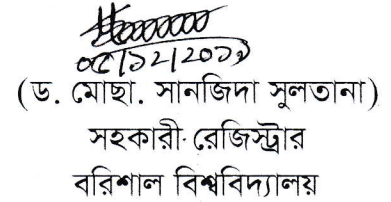 (ড. মোছা. সানজিদা সুলতানা)
সহকারী রেজিস্ট্রার
বরিশাল বিশ্ববিদ্যালয়